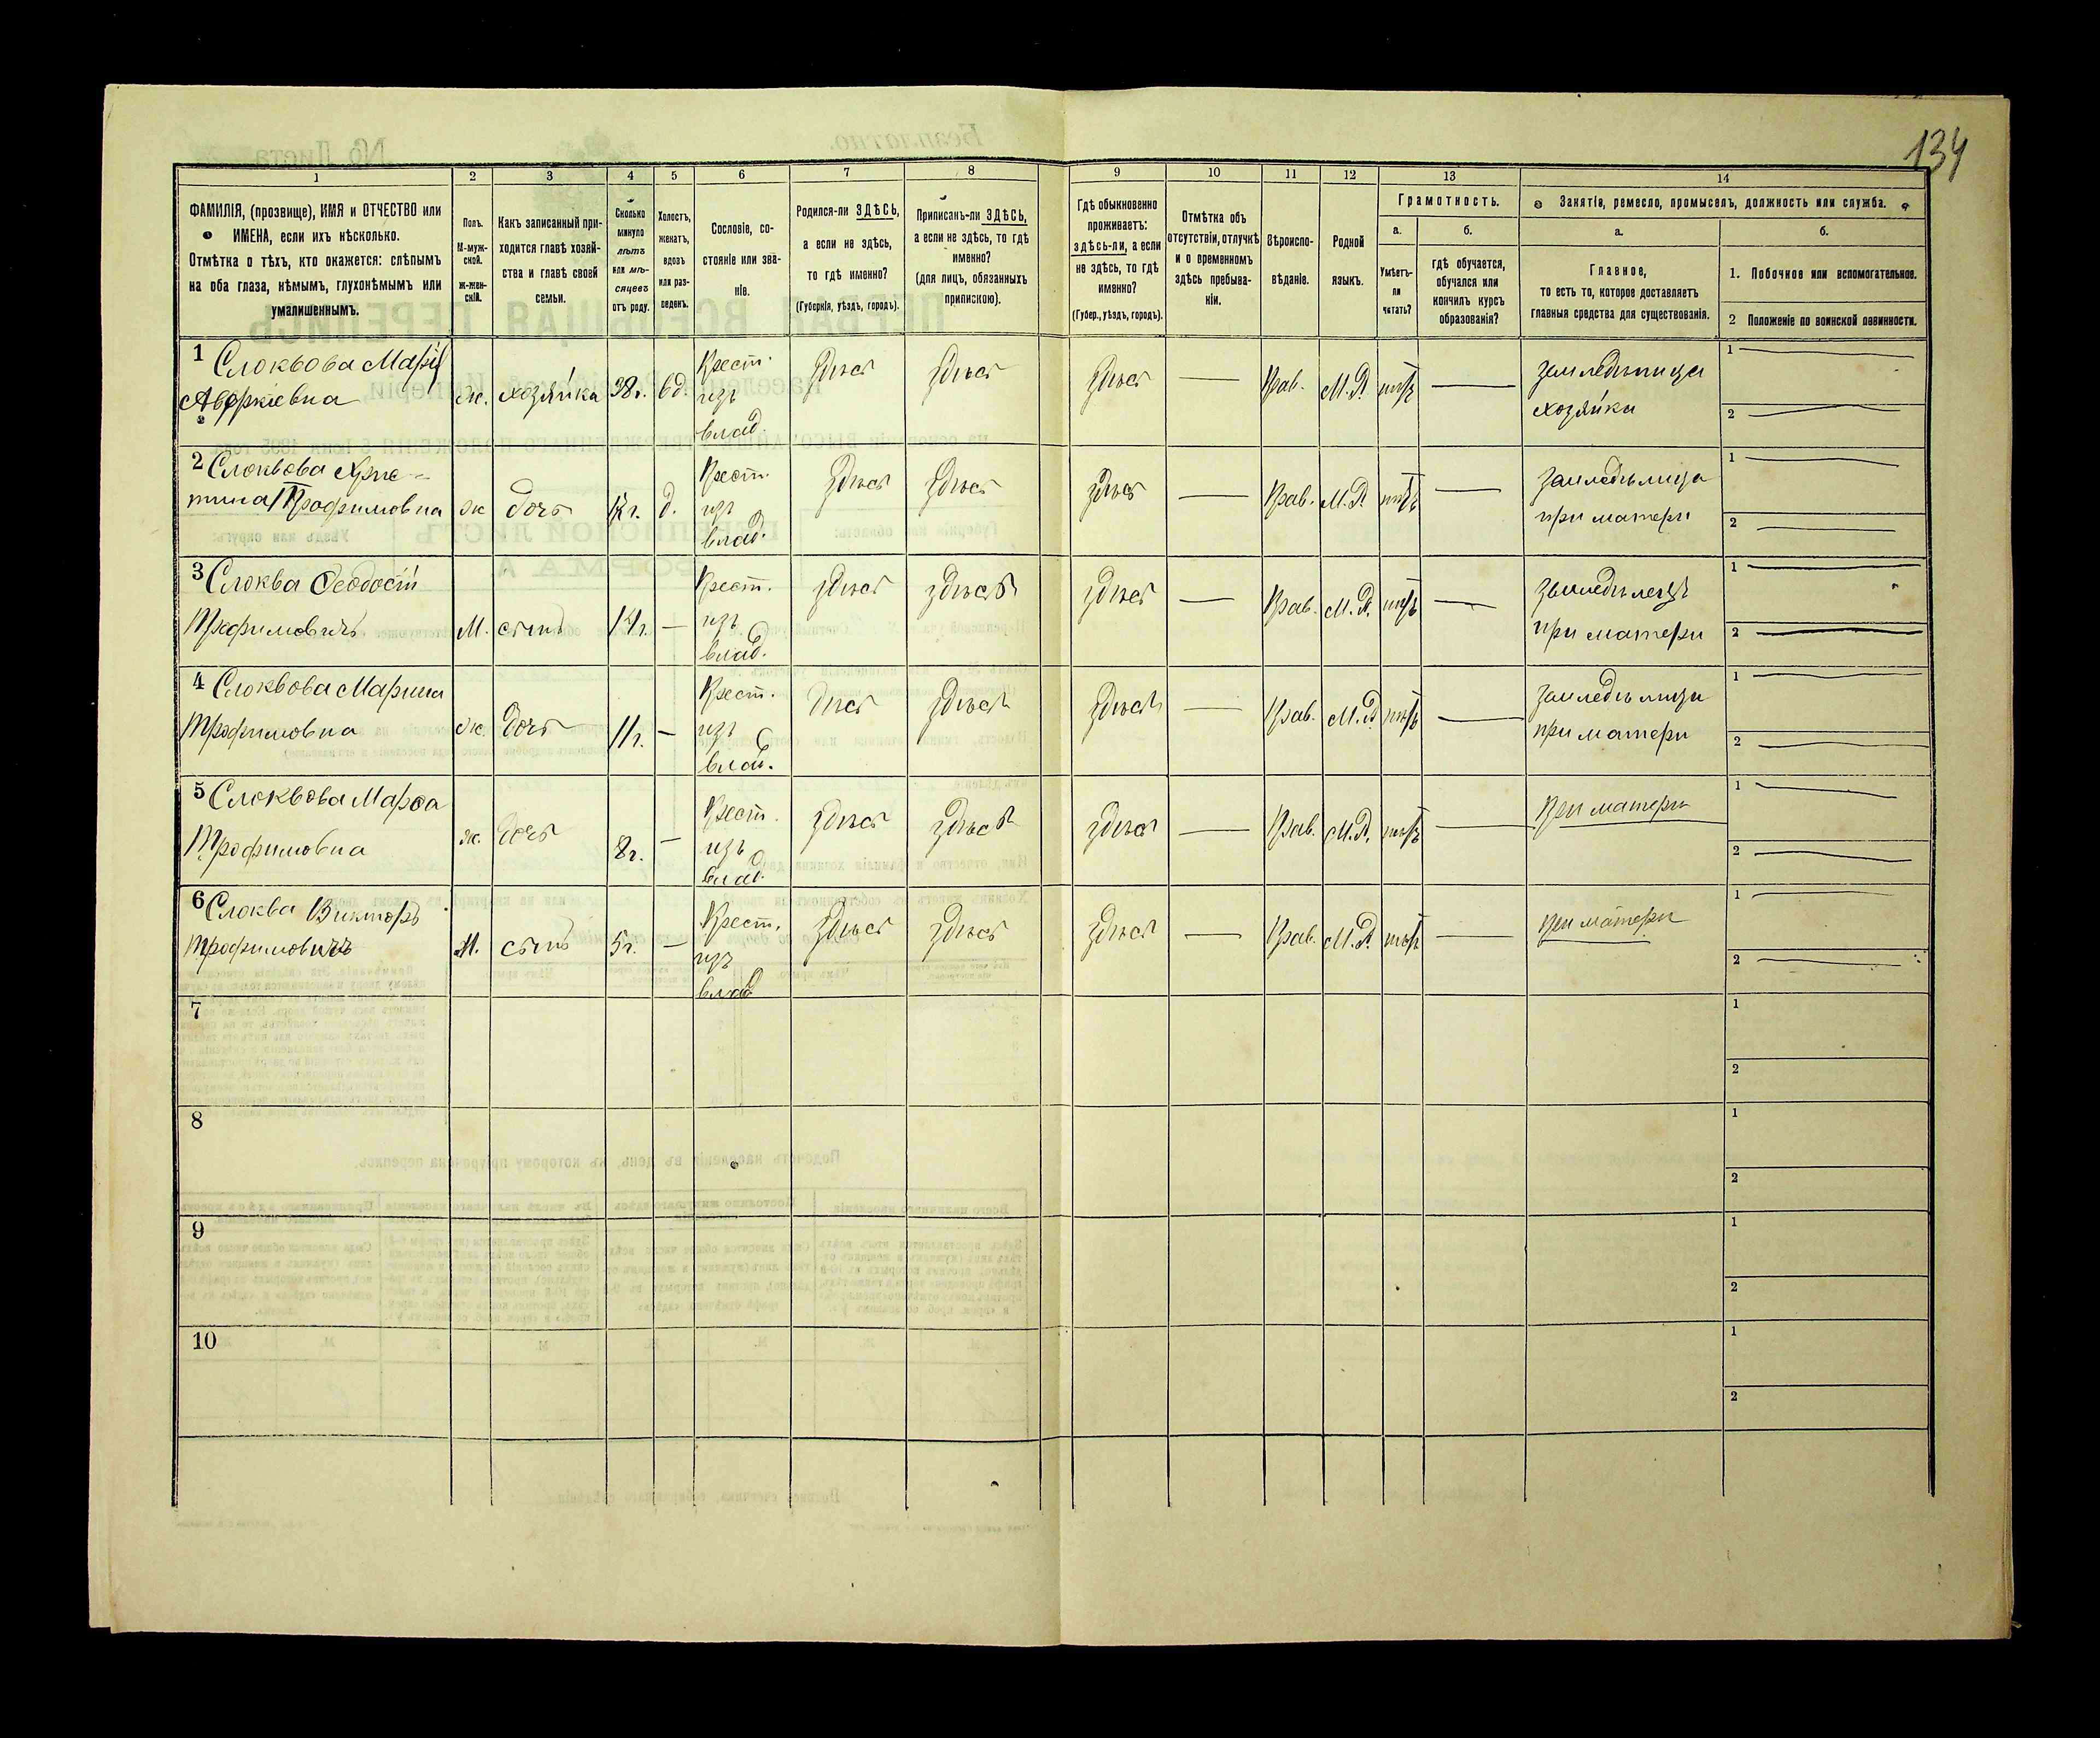 134
1 2 3 4 5 6 7 8 9 10 11 12 13 14
ФАМИЛІЯ, (прозвище), ИМЯ и ОТЧЕСТВО или
ИМЕНА, если ихъ нѣсколько.
Отмѣтка о тѣхъ, кто окажется: слѣпымъ
на оба глаза, нѣмымъ, глухонѣмымъ или
умалишеннымъ.
Полъ.
М-муж-
ской.
Ж-жен-
скій.
Какъ записанный при-
ходится главѣ хозяй-
ства и главѣ своей
семьи.
Сколько
минуло
лѣтъ
или мѣ-
сяцевъ
отъ роду.
Холостъ,
женатъ,
вдовъ
или раз-
веденъ.
Сословіе, со-
стояніе или зва-
ніе.
Родился-ли ЗДѢСЬ,
а если не здѣсь,
то гдѣ именно?
(Губернія, уѣздъ, городъ).
Приписанъ-ли ЗДѢСЬ,
а если не здѣсь, то гдѣ
именно?
(для лицъ, обязанныхъ
припискою).
Гдѣ обыкновенно
проживаетъ:
здѣсь-ли, а если
не здѣсь, то гдѣ
именно?
(Губер., уѣздъ, городъ).
Отмѣтка объ
отсутствіи, отлучкѣ
и о временномъ
здѣсь пребыва-
ніи.
Вѣроиспо-
вѣданіе.
Родной
языкъ.
Грамотность.
а.
Умѣетъ-
ли
читать?
б.
гдѣ обучается,
обучался или
кончилъ курсъ
образованія?
Занятіе, ремесло, промыселъ, должность или служба.
а.
Главное,
то есть то, которое доставляетъ
главныя средства для существованія.
б.
1. Побочное или вспомогательное.
2 Положеніе по воинской повинности.
1 Слоквова Марія ж. хозяйка 38 г. вд. Крест. здѣсь здѣсь здѣсь — Прав. М.Р. нѣтъ — земледѣлица 1 —
Аверкіевна изъ влад. хозяйка 2 —
2 Слоквова Хрис- ж дочь г. д. Крест. здѣсь здѣсь здѣсь — Прав. М.Р. нѣтъ — земледѣлица 1 —
тина Трофимовна изъ влад. при матери 2 —
3 Слоква Феодосій М. сынъ 14 г. — Крест. здѣсь здѣсь здѣсь — Прав. М.Р. нѣтъ — земледѣлецъ 1 —
Трофимовичъ изъ влад. при матери 2 —
4 Слоквова Марина ж. дочь 11 г. — Крест. здѣсь здѣсь здѣсь — Прав. М.Р. нѣтъ — земледѣлица 1 —
Трофимовна изъ влад. при матери 2 —
5 Слоквова Марфа ж. дочь 8 г. — Крест. здѣсь здѣсь здѣсь — Прав. М.Р. нѣтъ — при матери 1 —
Трофимовна изъ влад. 2 —
6 Слоква Викторъ М. сынъ 5 г. — Крест. здѣсь здѣсь здѣсь — Прав. М.Р. нѣтъ — при матери 1 —
Трофимовичъ изъ влад 2 —
7 1
2
8 1
2
9 1
2
10 1
2